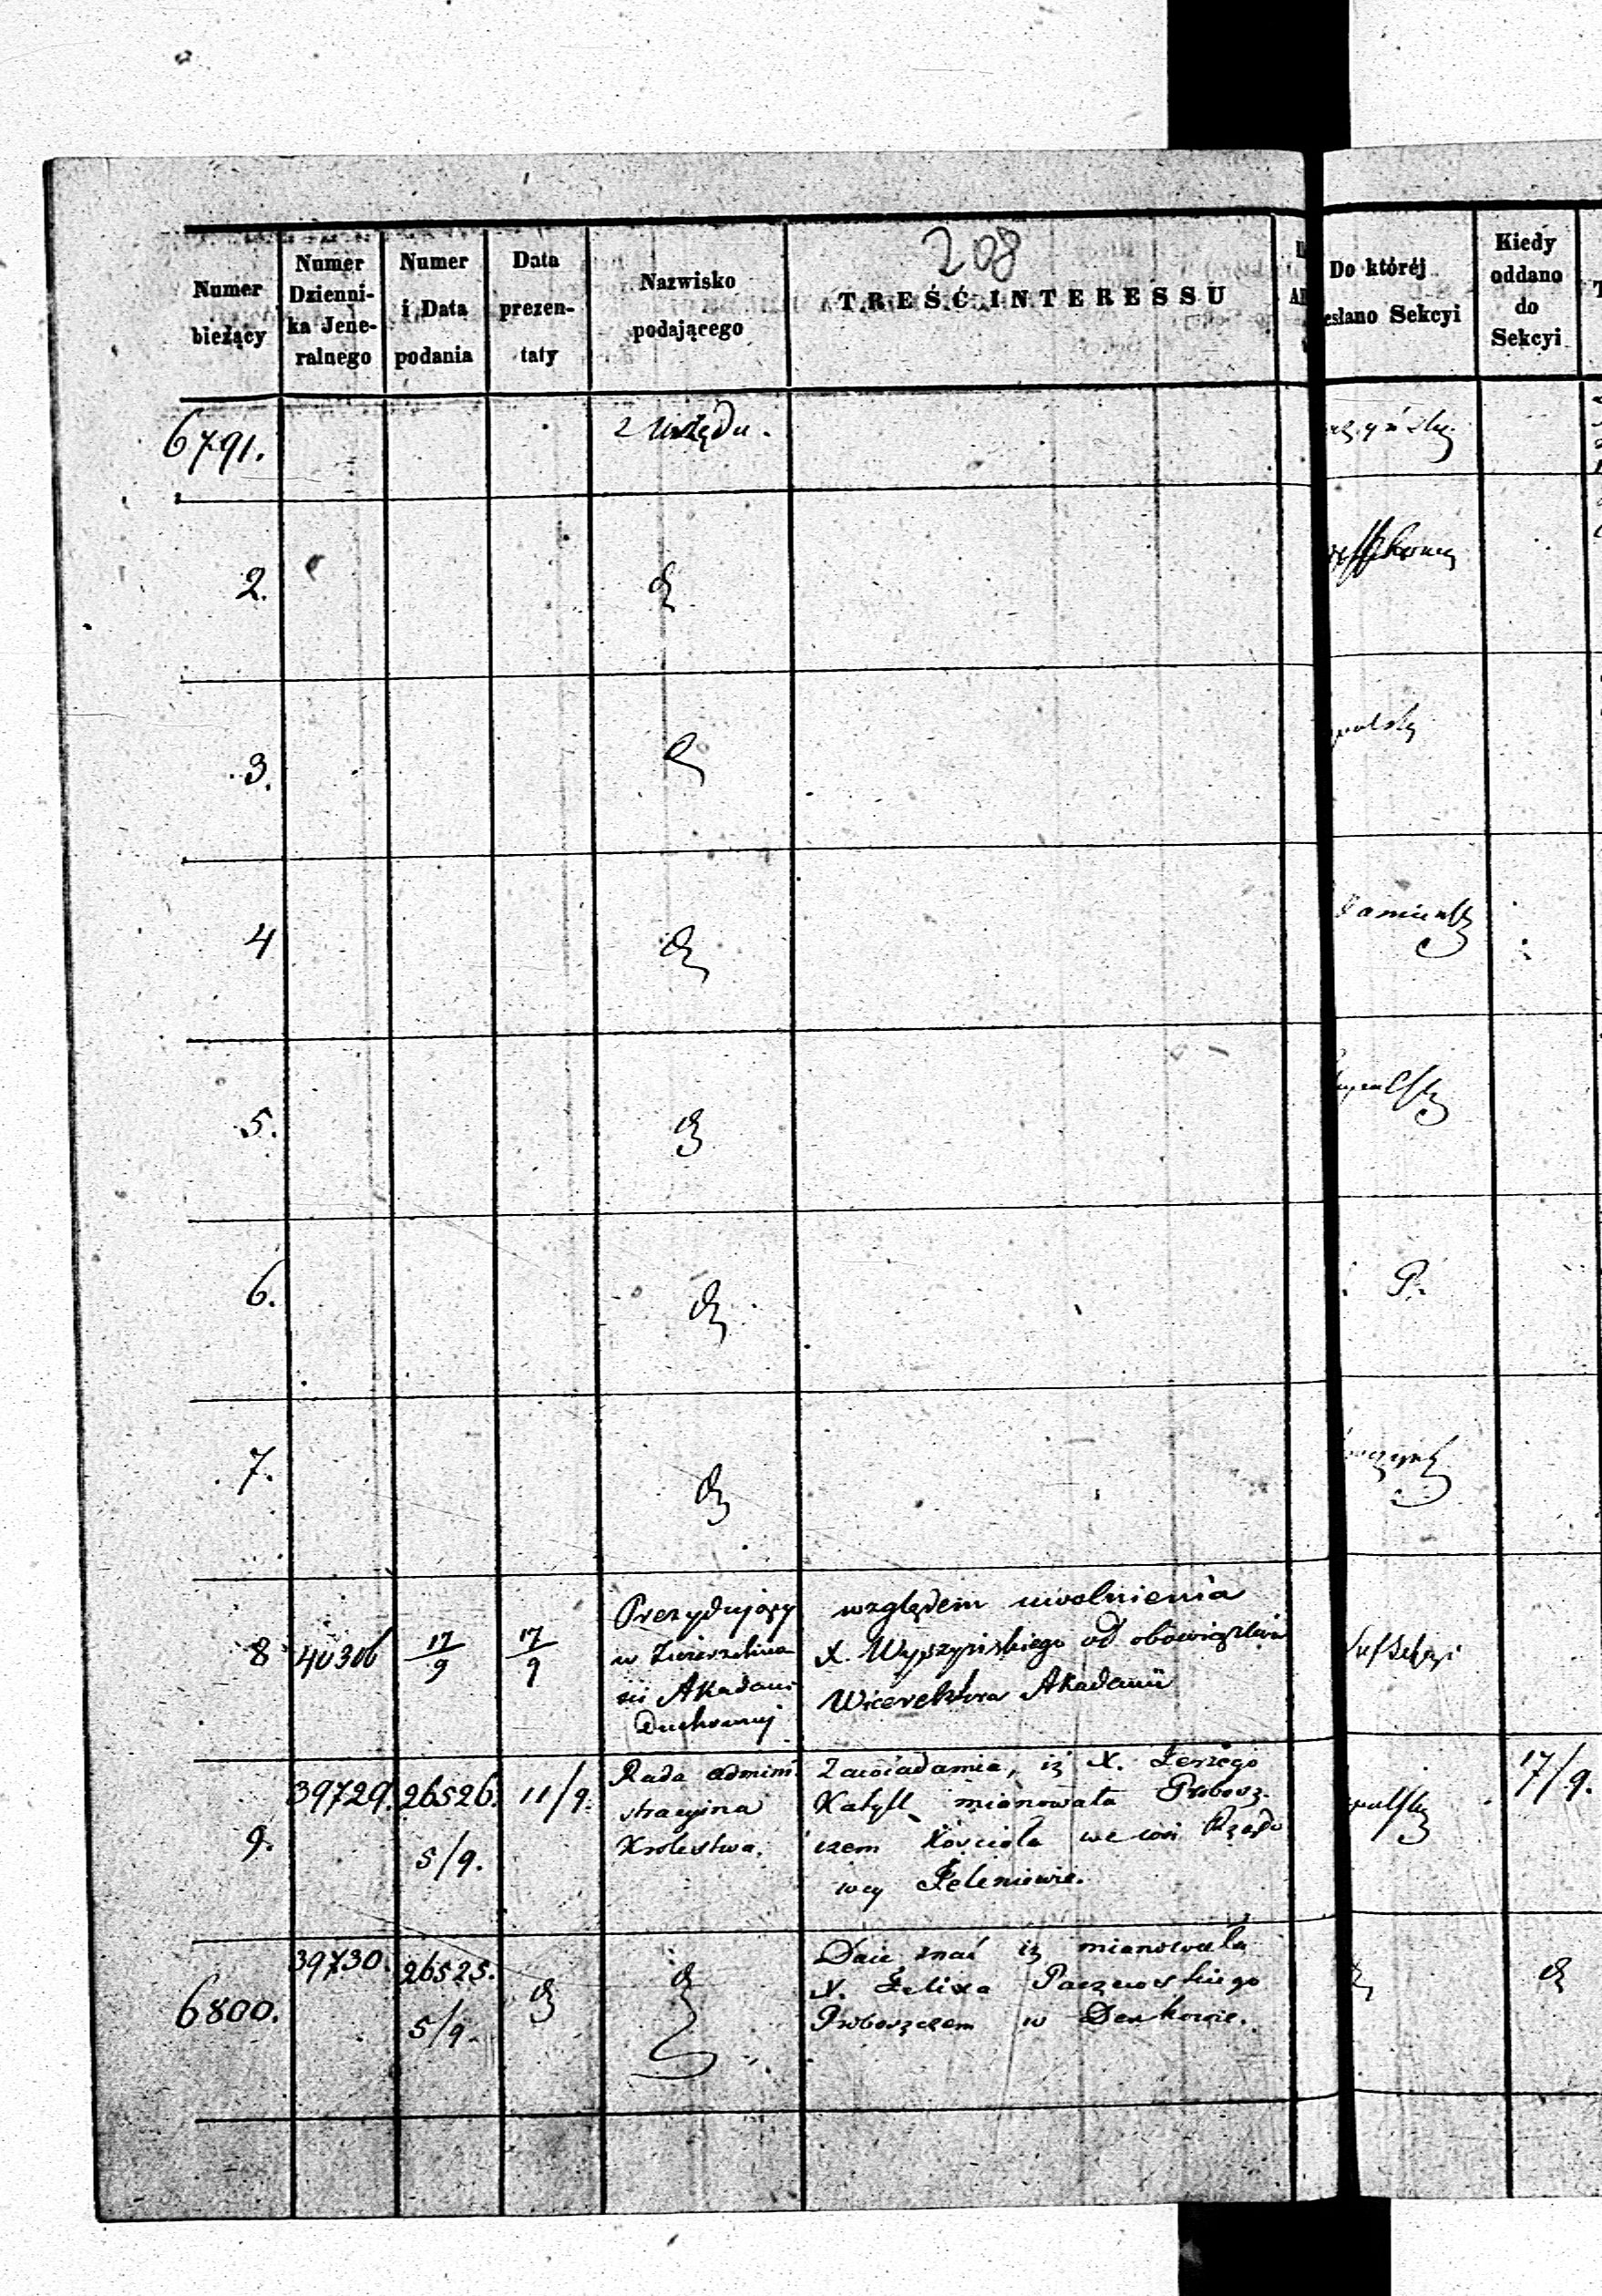 208
Numer bieżący
Numer Dzienni-ka Jene-ralnego
Numer i Data podania
Data prezen-taty
Nazwisko podającego
TREŚĆ INTERESSU
Do któréj
esłano Sekcyi
Kiedy oddano do Sekcyi
6791.
z Urzędu.
2.
3.
4
5.
6.
P.
7.
8
40306
17/9
17/9
Prezydujący
w
Akademi
Duchownej
względem uwolnienia
X. Wyszyńskiego od obowiązków
Wicerektora Akademii
9.
39729.
26526.
5/9.
11/9.
Rada admini
stracyina
Krolestwa.
Zawiadamia, iż X. Jerzego
mianowała Probosz-
czem Kościoła we wsi Rządo
wey Jeleniewie.
17/9.
6800.
39730.
26525.
5/9.
Daie znać iż mianowała
X. Felixa Paczewskiego
Proboszczem w Denkowie.